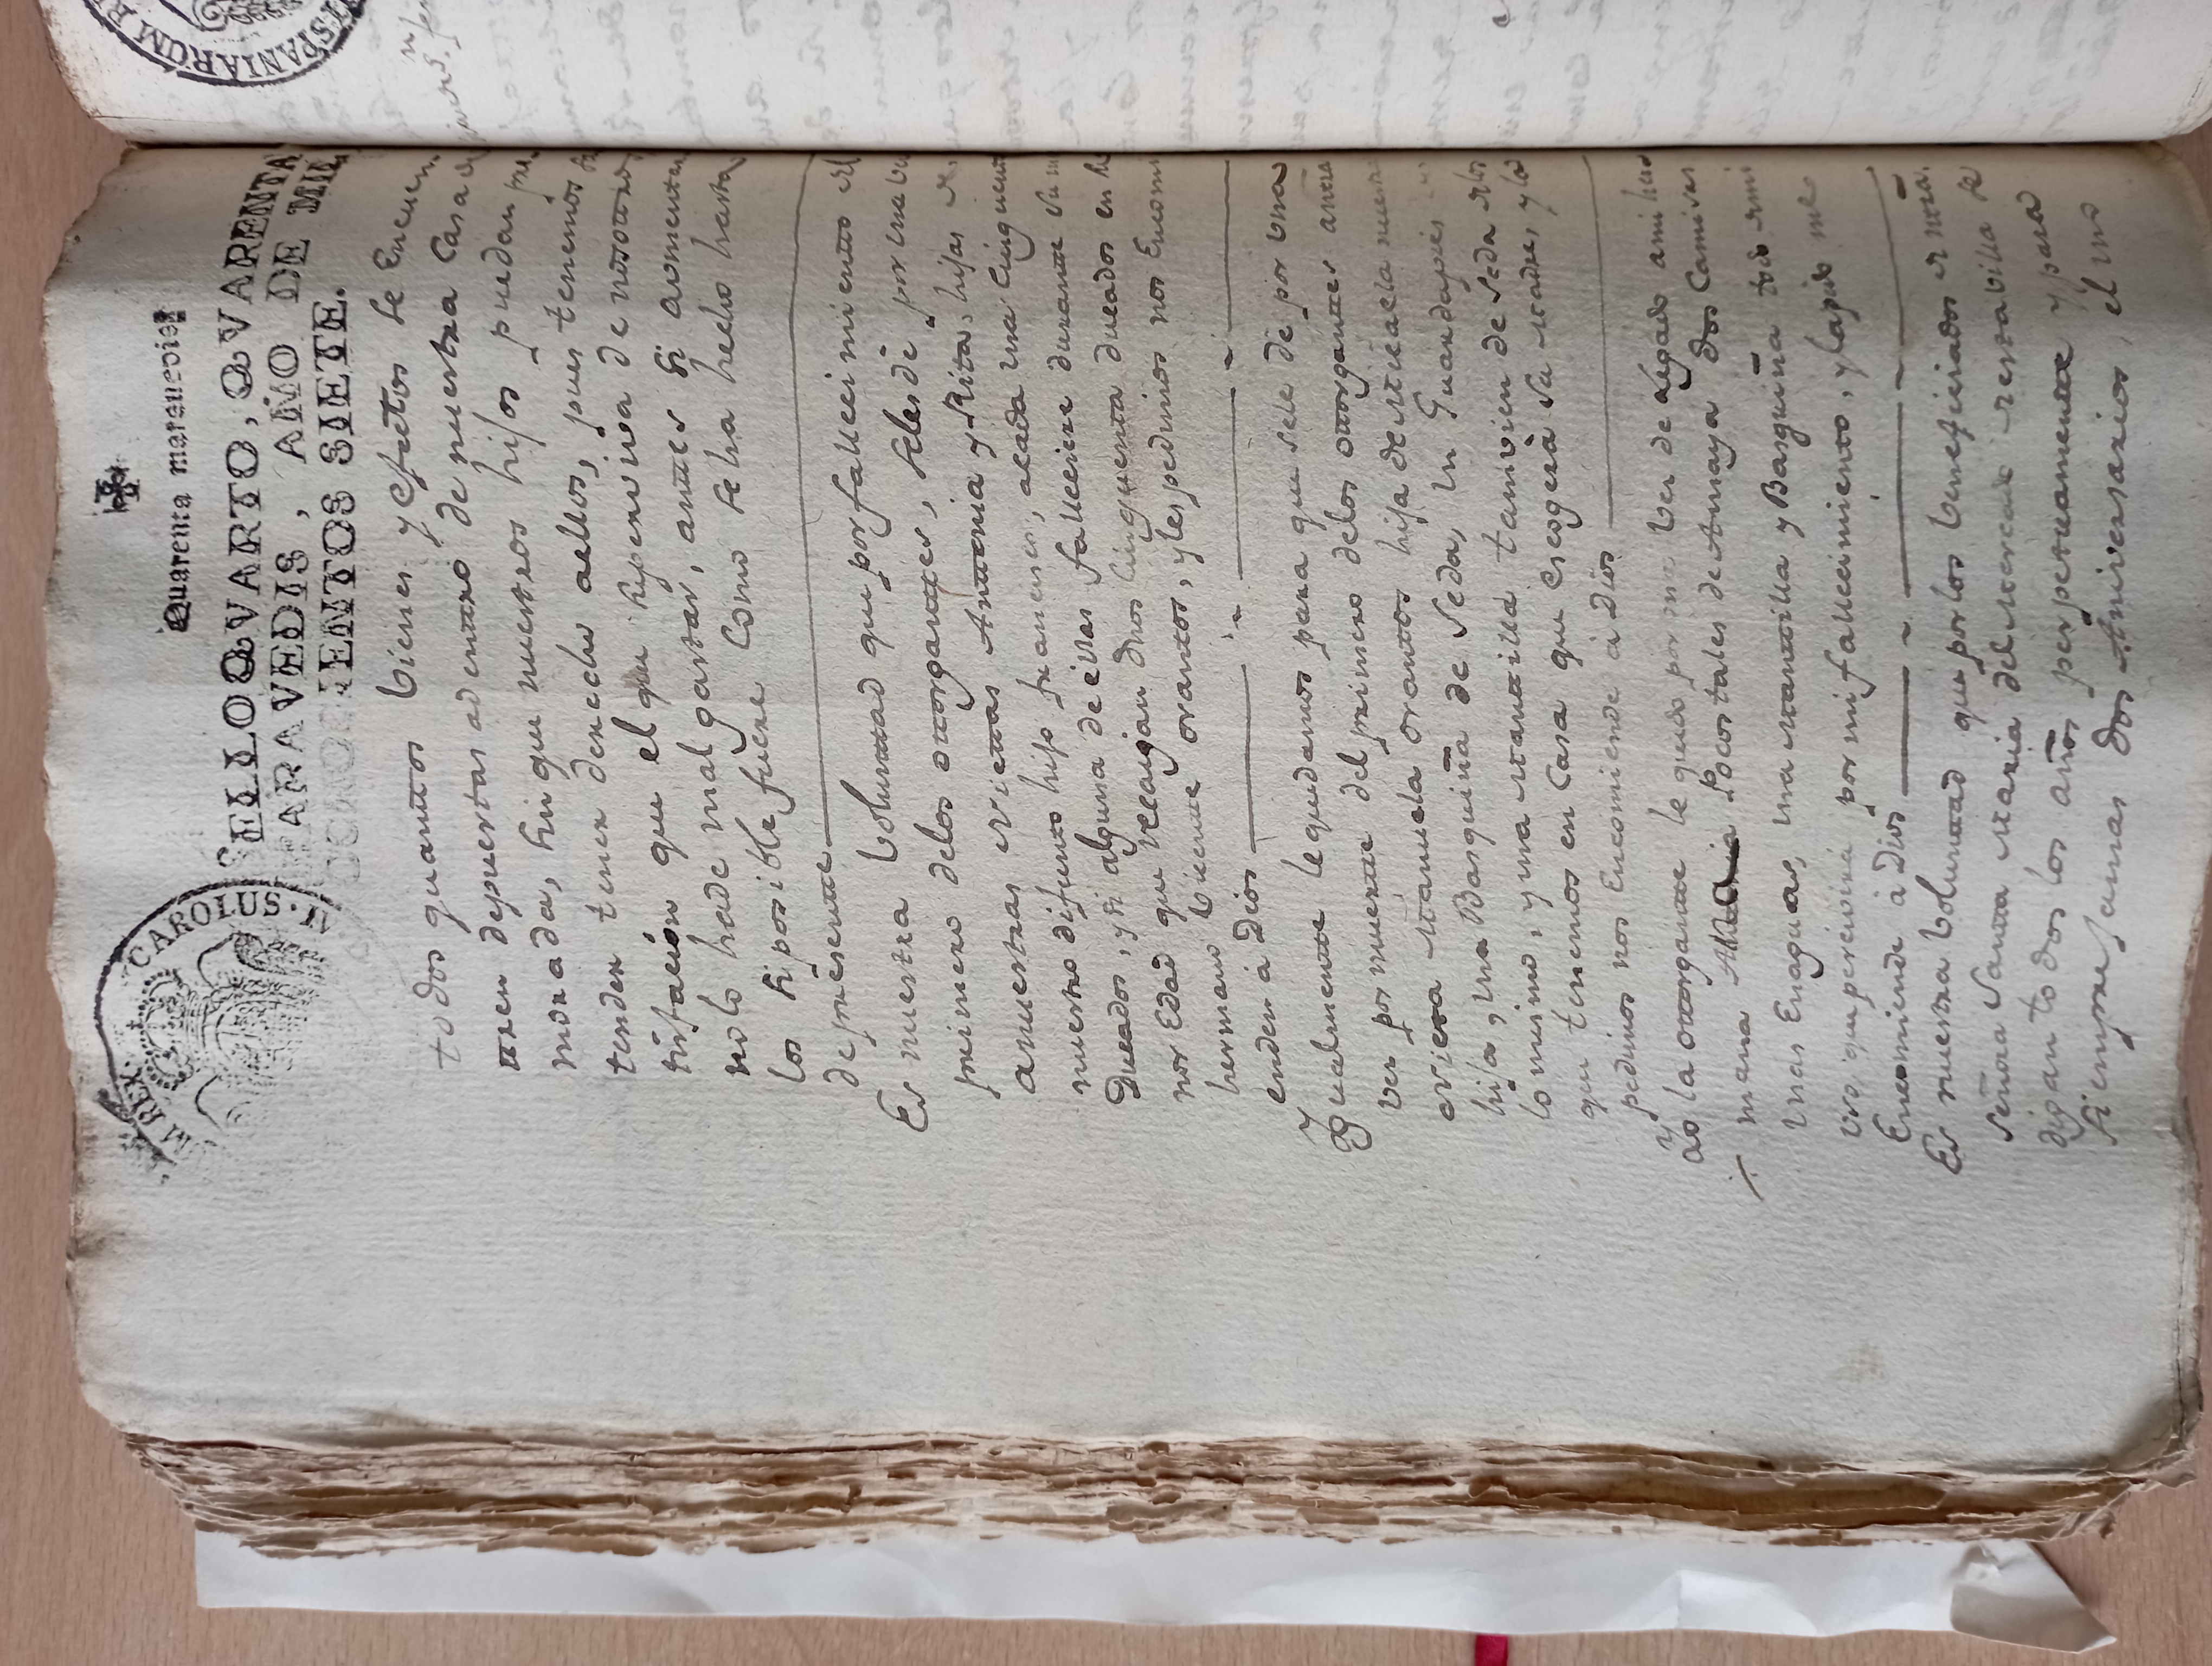 CAROLUS IV
M REX
Quarenta marauedis
SELLO QVARTO, QVARENTA
MARAVEDIS, AÑO DE MIL
OCHOCIENTOS SIETE.
todos quanttos bienes y efecttos se Encuen-
ttren de puertas adenttro de nuestra Casa
morada, sin que nuestros hijos puedan pre-
tender tener derecho aellos, pues tenemos sa
tisfación que el que superviva de nosottros
nolo hade mal gastar, anttes si aumentar
los si posible fuere Como seha hecho hasta
de presentte
Es nuestra Volunttad que por fallecimientto del
primero delos ottorganttes, seles dé por una vez
a nuestras Niettas Anttonia y Rita, hijas de
nuestro difunto hijo francisco, acada una Cinquenta
Ducados, y si alguna de éllas falleciere durantte su me
nor Edad que recaigan dhos Cinquenta ducados en su
hermano Vicentte Orantos, y les pedimos nos Encomi
enden à Dios
Ygualmentte le quedamos para que sele dé por una
vez por muertte del primero delos ottorganttes a nrâ
Nieta Manuela Oranttos hija de Micaela nuestra
hija, una Basquiña de Seda, un Guardapies de
lo mismo, y una Manttilla tamvien de seda delos
que tenemos en Casa que escogerà su Madre, y la
pedimos nos Encomiende à Dios
Yo la ottorgantte le quedo por una vez de Legado a mi her
mana Ana Pocostales de Amaya dos Camisas
unas Enaguas, una Manttilla y Basquiña todo de mi
uso, que percivirá por mi fallecimiento, y la pido me
Encomiende à Dios
Es nuestra Volunttad que por los Beneficiados de ntrâ.
Señora Santta Maria del Mercado de esta villa se
digan todos los años perpetuamentte y para
siempre Jamas dos Aniversarios, el uno